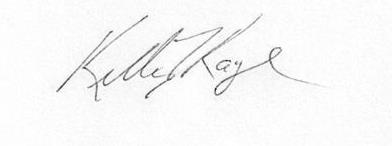 Kelly Kaye